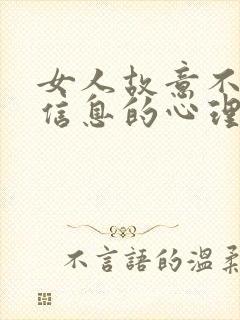 女人故意不
信息的心理
不言語的溫柔